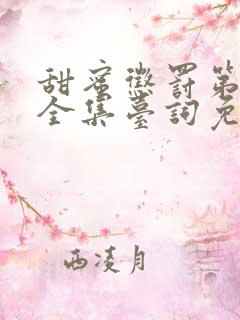 甜蜜懲罰第
全集臺詞免
西凌月